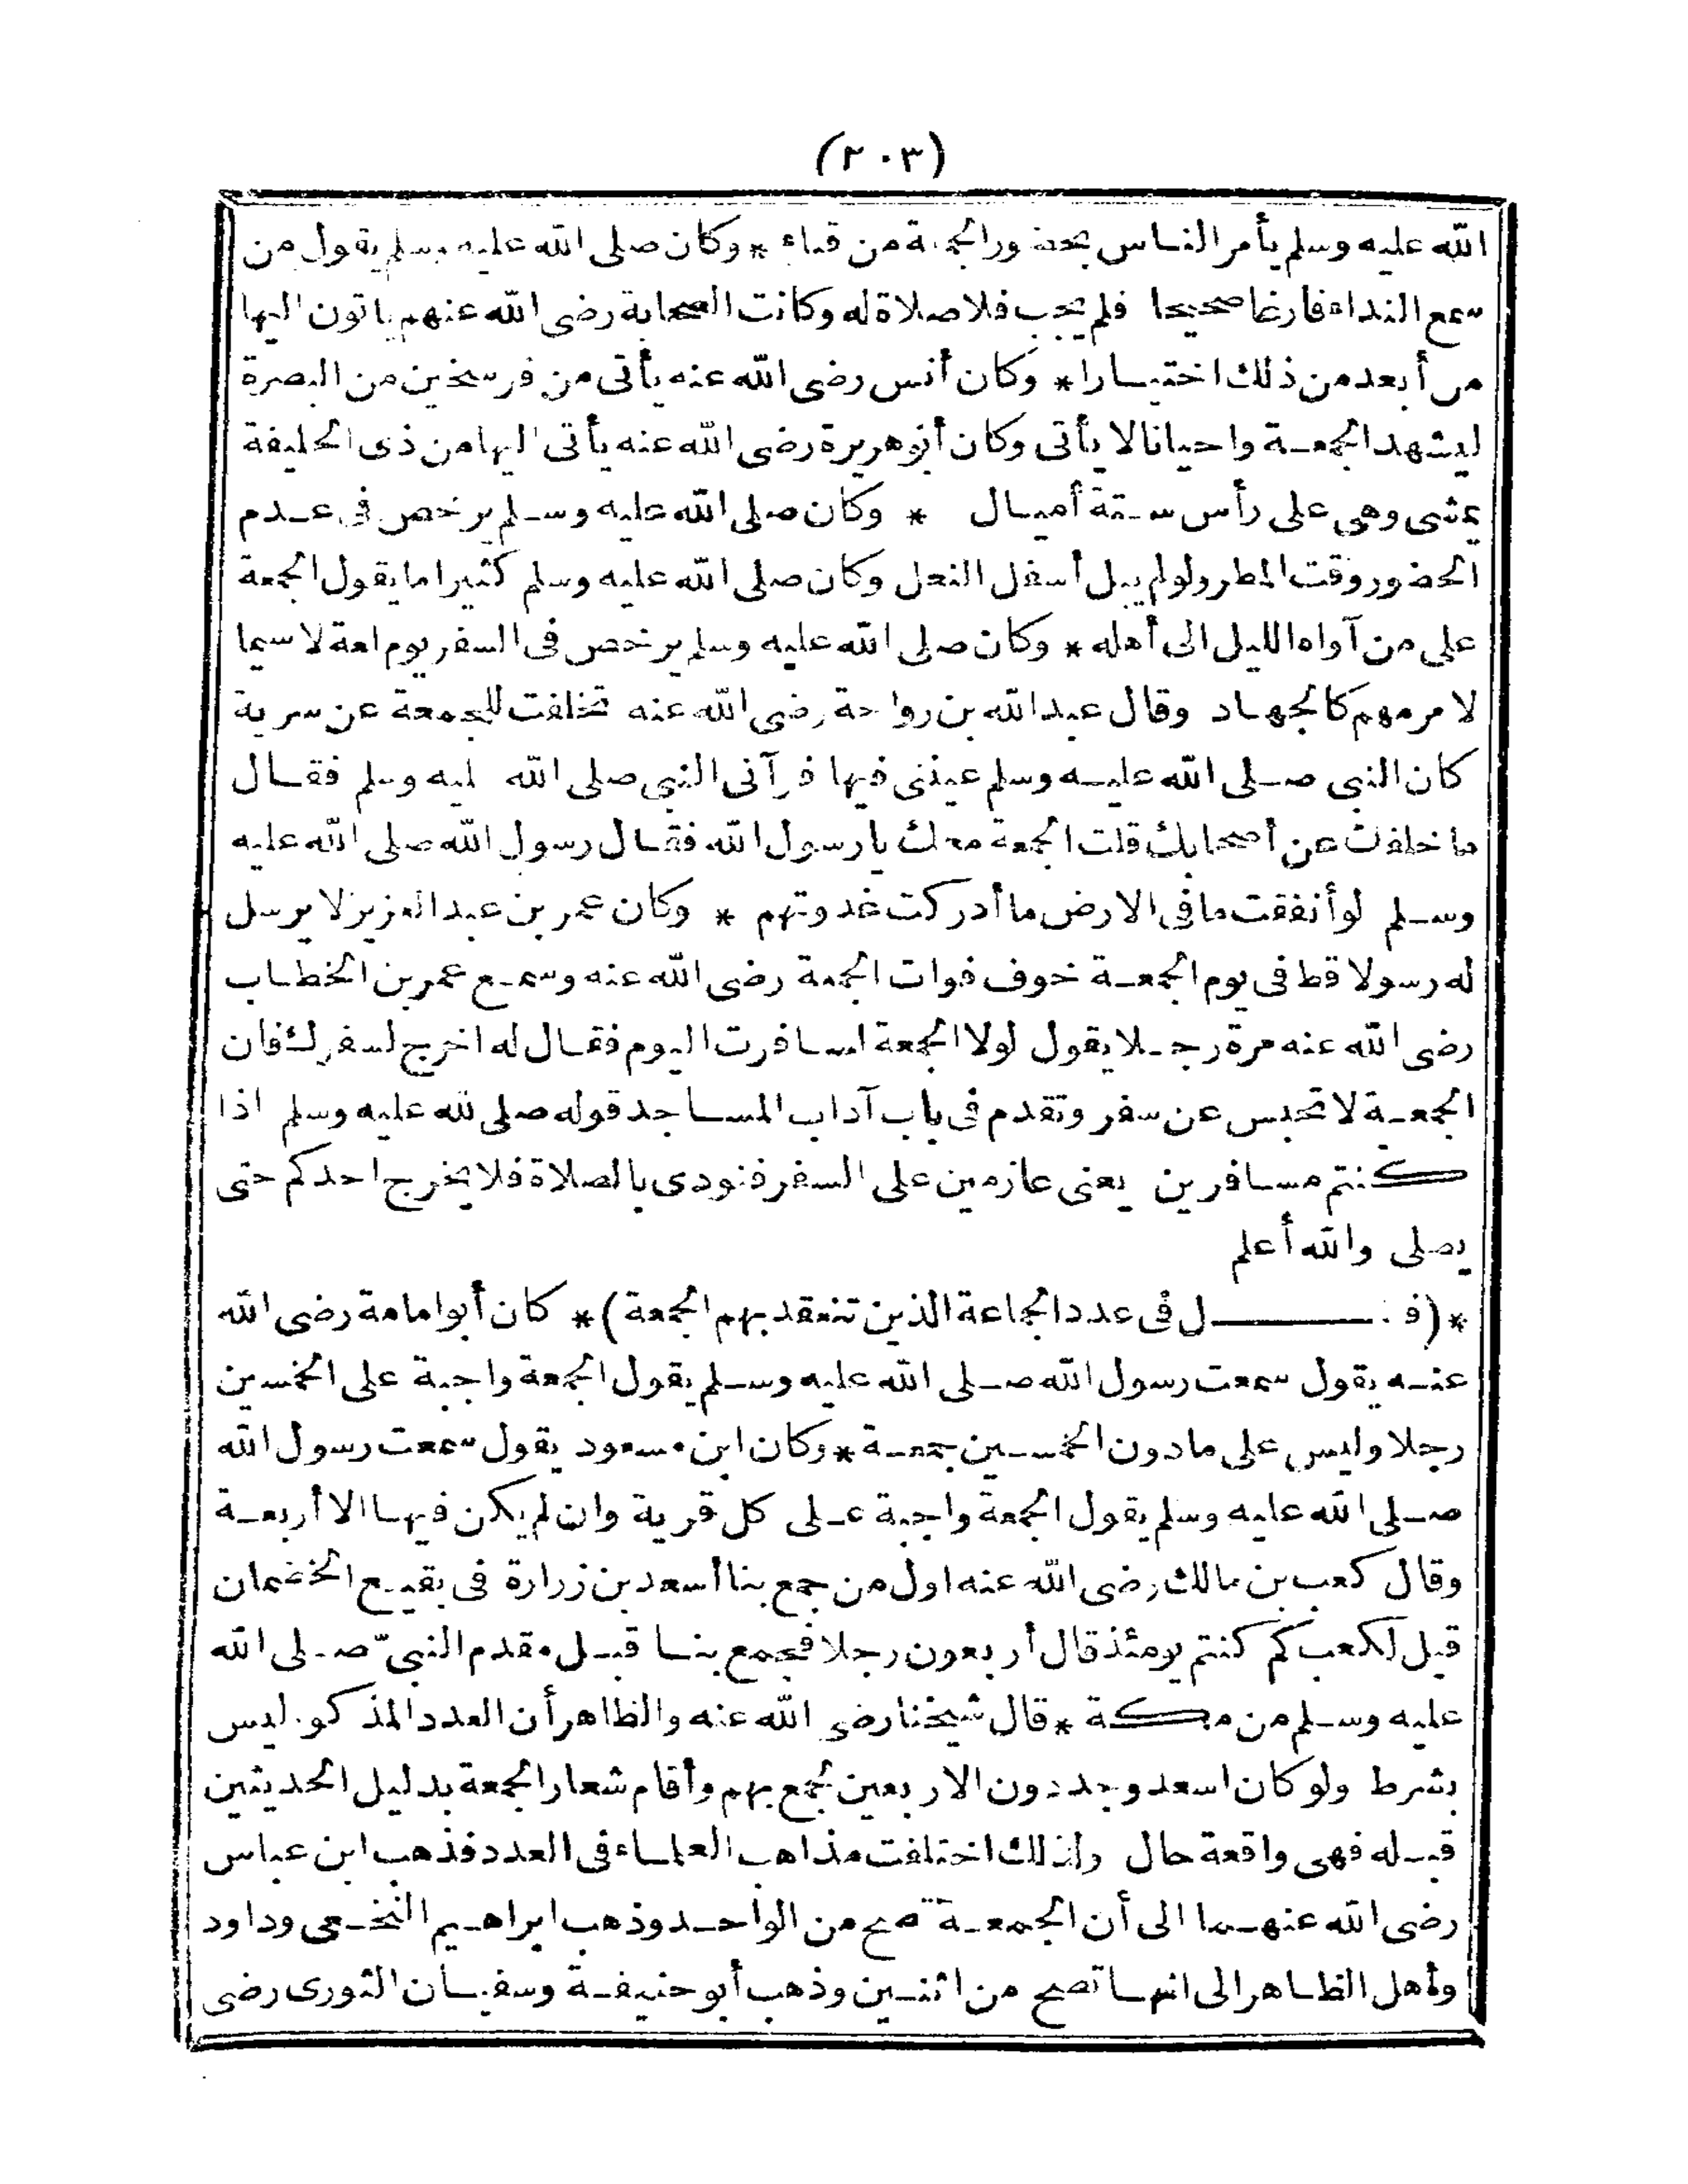 (٢٠٣)
الله عليه وسلم يأمر الناس بحضور الجمعة من قباء * وكان صلى الله عليه وسلم يقول من
سمع النداء فارغا صحيحا فلم يجب فلا صلاة له وكانت الصحابة رضى الله عنهم ياتون اليها
من أبعد من ذلك اختيارا * وكان أنس رضى الله عنه يأتى من فرسخين من البصرة
ليشهد الجمعة واحيانا لا يأتى وكان أبو هريرة رضى الله عنه يأتى اليها من ذى الحليفة
يمشى وهى على رأس ستة أميال * وكان صلى الله عليه وسلم يرخص فى عدم
الحضور وقت المطر ولو لم يبل أسفل النعل وكان صلى الله عليه وسلم كثيرا ما يقول الجمعة
على من آواه الليل الى أهله * وكان صلى الله عليه وسلم يرخص فى السفر يوم لاسيما
لا مر مهم كالجهاد وقال عبد الله بن رواحة رضى الله عنه تخلفت للجمعة عن سرية
كان النبى صلى الله عليه وسلم عيننى فيها فرآنى النبى صلى الله ليه وسلم فقال
ما خلفك عن أصحابك قلت الجمعة معك يا رسول الله فقال رسول الله صلى الله عليه
وسلم لو أنفقت ما فى الارض ما أدركت غدوتهم * وكان عمر بن عبد العزيز لا يرسل
له رسولا قط فى يوم الجمعة خوف فوات الجمعة رضى الله عنه وسمع عمر بن الخطاب
رضى الله عنه مرة رجلا يقول لولا الجمعة لسافرت اليوم فقال له اخرج لسفرك فان
الجمعة لا تحبس عن سفر وتقدم فى باب آداب المساجد قوله صلى لله عليه وسلم اذا
كنتم مسافرين يعنى عازمين على السفر فنودى بالصلاة فلا يخرج احدكم حتى
يصلى والله أعلم
* (فصل فى عدد الجماعة الذين تنعقد بهم الجمعة) * كان أبو امامة رضى الله
عنه يقول سمعت رسول الله صلى الله عليه وسلم يقول الجمعة واجبة على الخمسين
رجلا وليس على ما دون الخمسين جمعة * وكان ابن مسعود يقول سمعت رسول الله
صلى الله عليه وسلم يقول الجمعة واجبة على كل قرية وان لم يكن فيها الا أربعة
وقال كعب بن مالك رضى الله عنه اول من جمع بنا أسعد بن زرارة فى بقيع الخضمان
قيل لكعب كم كنتم يومئذ قال أربعون رجلا فجمع بنا قبل مقدم النبىّ صلى الله
عليه وسلم من مكة * قال شيخنا رضى الله عنه والظاهر أن العدد المذكور ليس
بشرط ولو كان اسعد وجد دون الاربعين لجمع بهم وأقام شعار الجمعة بدليل الحديثين
قبله فهى واقعة حال ولذلك اختلفت مذاهب العلماء فى العدد فذهب ابن عباس
رضى الله عنهما الى أن الجمعة تصح من الواحد وذهب ابراهيم النخعى وداود
وأهل الظاهر الى انها تصح من اثنين وذهب أبو حنيفة وسفيان الثورى رضى